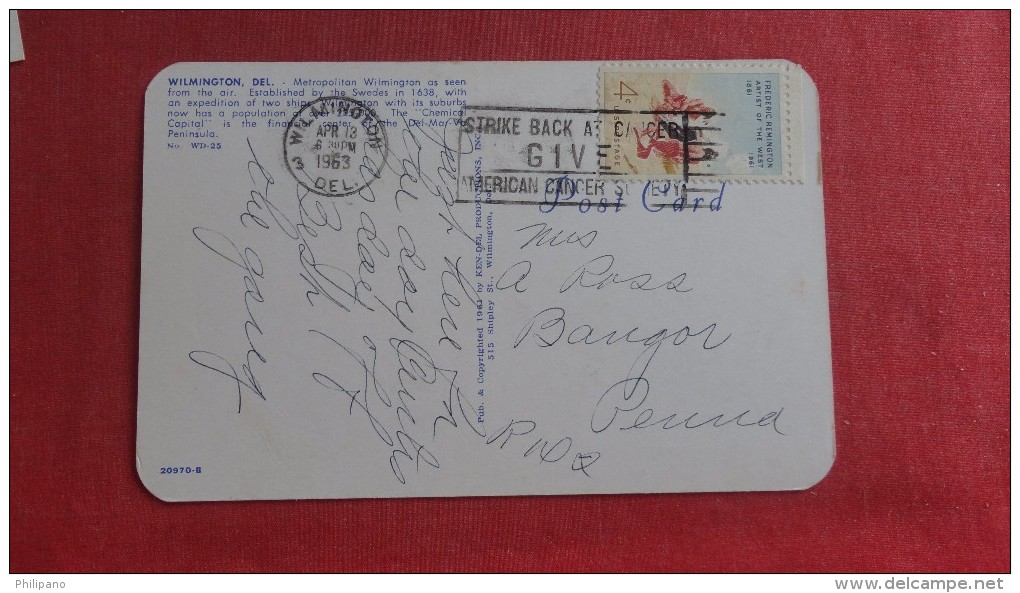 WILMINGTON, DEL. - Metropolitan Wilmington as seen
from the air. Established by the Swedes in 1638, with
an expedition of two ships, Wilmington with its suburbs
now has a population of over The "Chemical
Capital" is the financial center of the Del-Mar-Va
Peninsula.
No. WD-25
WILMINGTON
APR 13
6 30 PM
1963
3
DEL.
STRIKE BACK AT CANCER
GIVE
AMERICAN CANCER SOCIETY
4c
U.S. POSTAGE
FREDERIC REMINGTON
ARTIST OF THE WEST
1861 1961
Post Card
Pub. & Copyrighted 1961 by KEN-DEL PRODUCTIONS, INC.
515 Shipley St., Wilmington,
Mrs
A Ross
Bangor
Penna
here
one day
day
Beth
the gang
20970-B
Philipano
www.delcampe.net